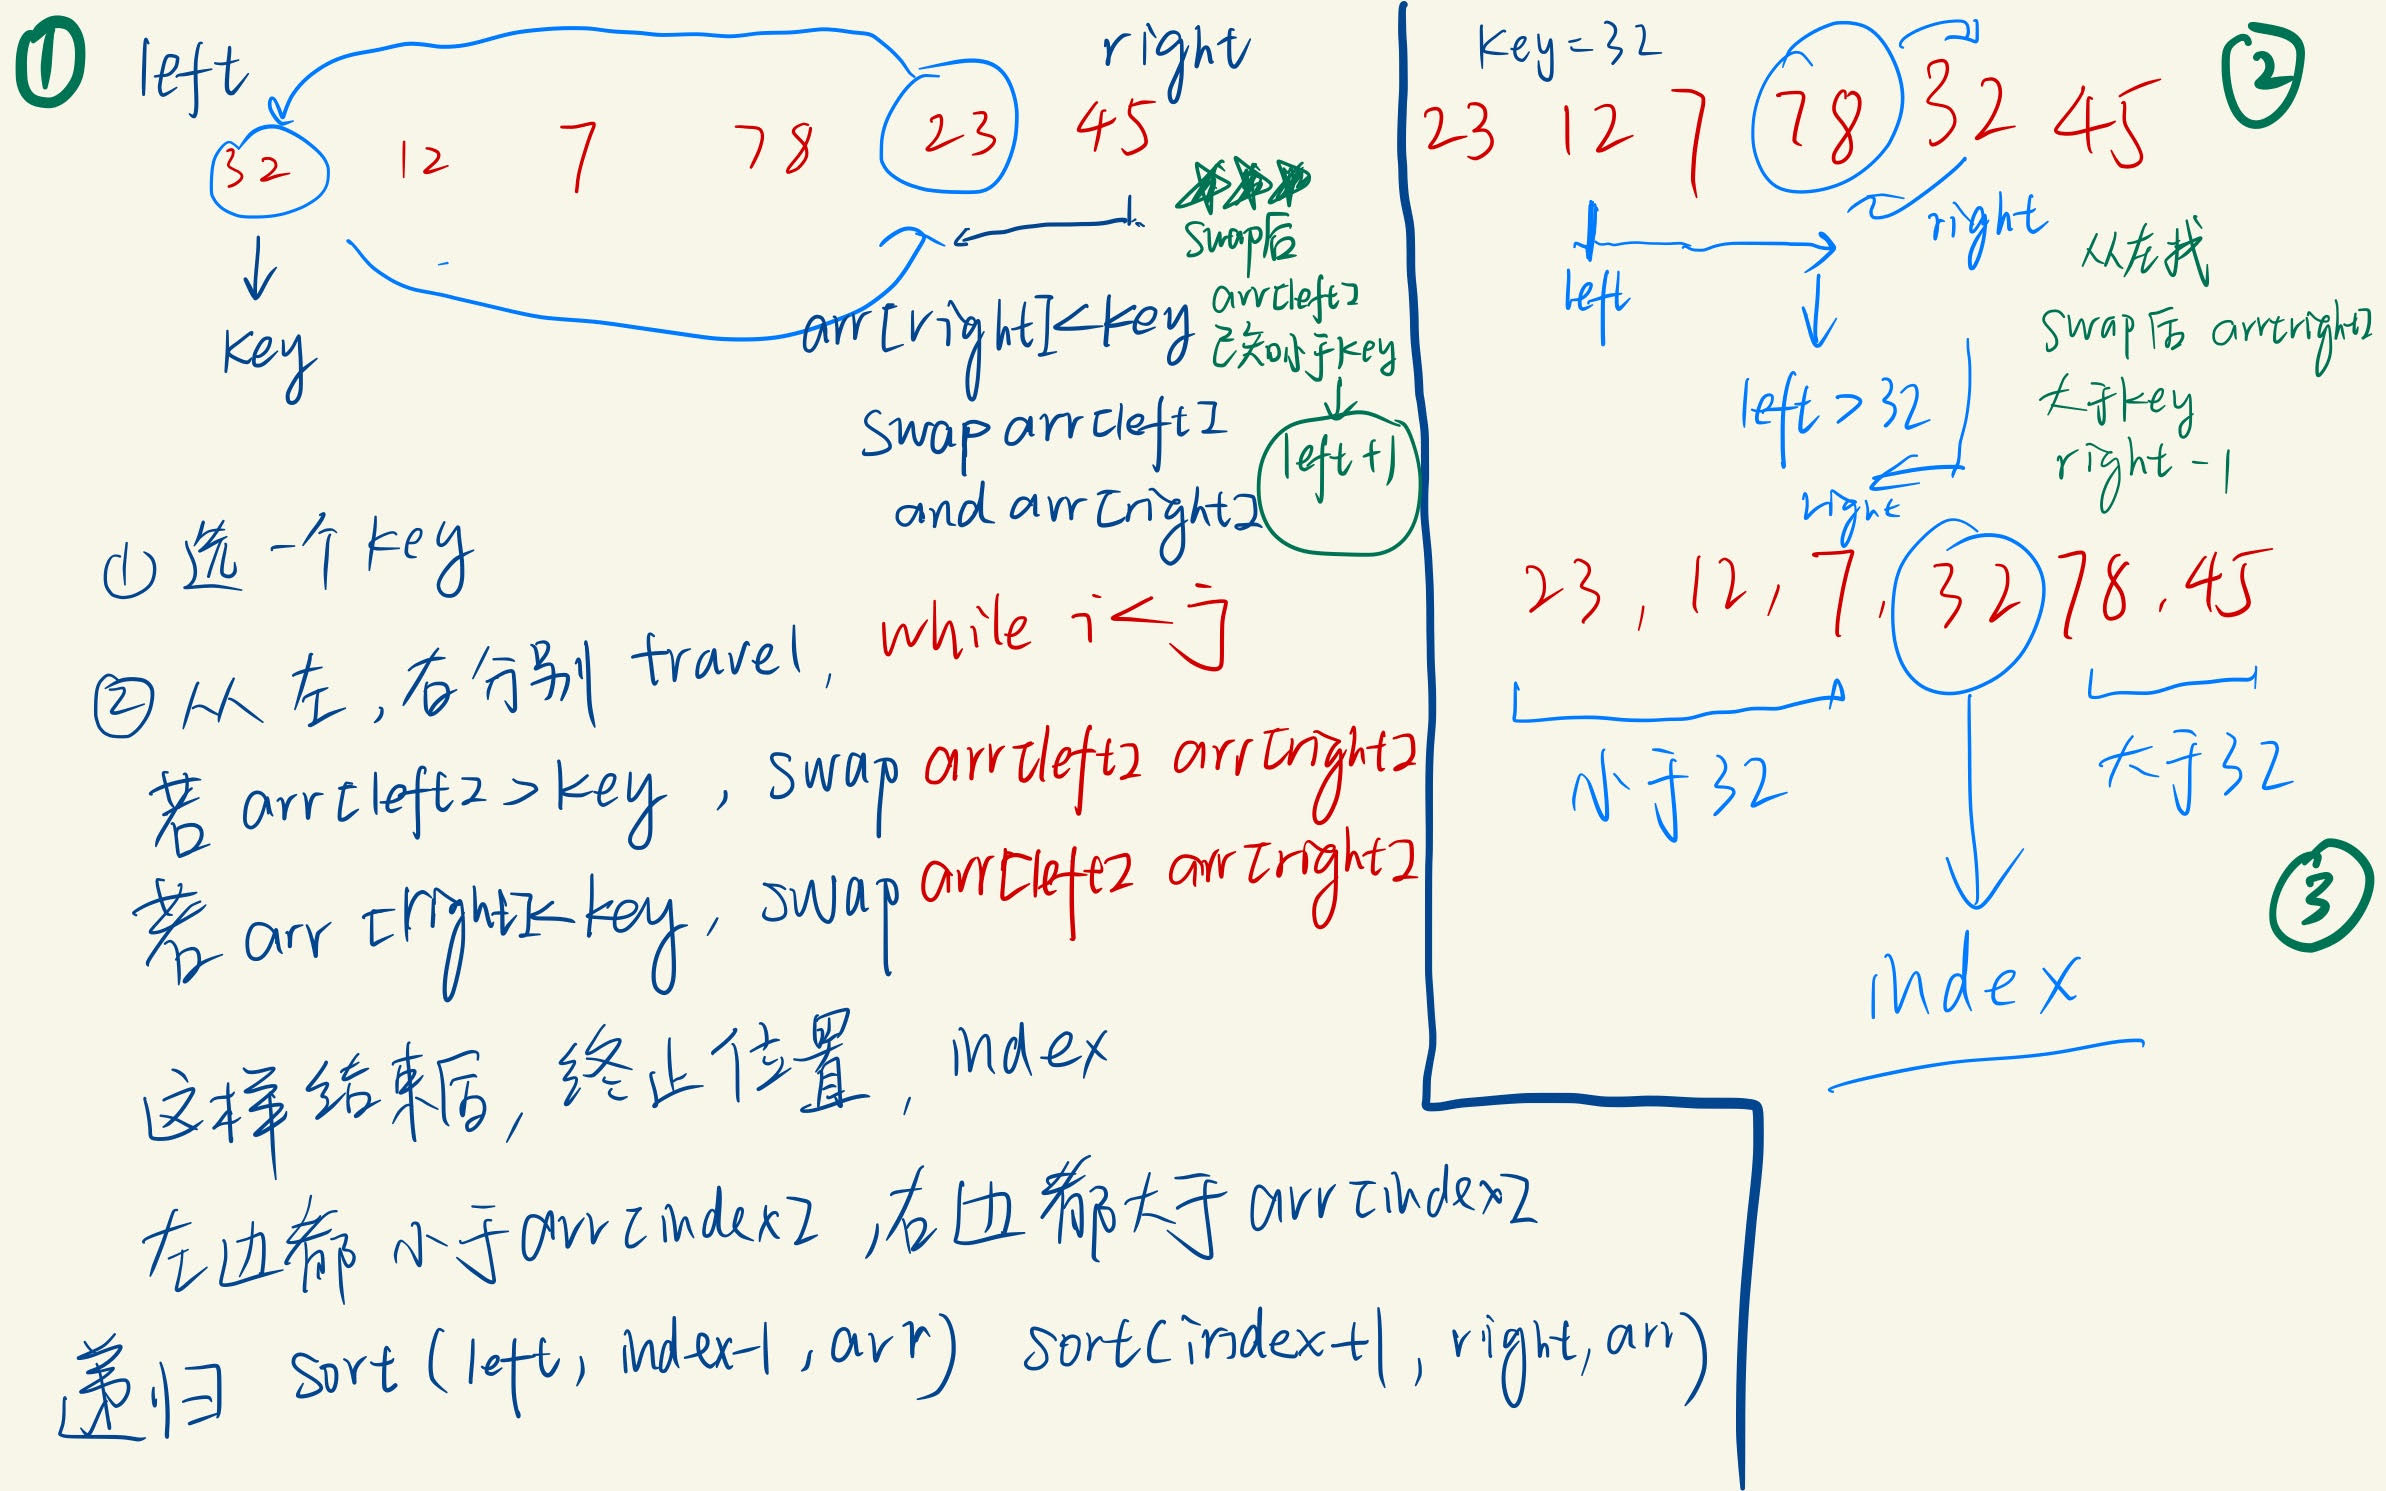 ①
left
right
32 12 7 78 23 45
key
arr[right]<key
swap arr[left]
and arr[right]
swap后
arr[left]
已关小于key
left+1
① 选一个key
② 从左,右分别 travel, while i<j
若 arr[left]>key, swap arr[left] arr[right]
若 arr[right]<key, swap arr[left] arr[right]
这样结束后, 终止位置, index
左边都小于arr[index], 右边都大于arr[index]
递归 sort(left, index-1, arr) sort(index+1, right, arr)
②
key=32
23 12 7 78 32 45
left
right
left>32
从左找
swap后 arr[right]
大于key
right-1
right
23, 12, 7, 32 78. 45
小于32
大于32
③
index